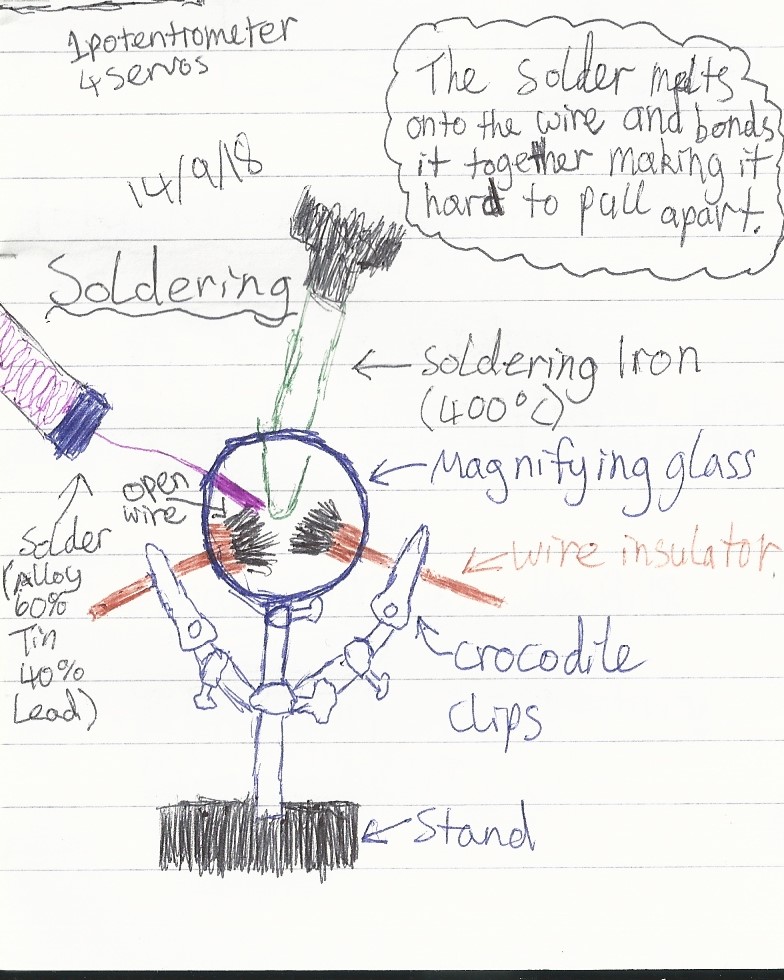 1 potentiometer
4 servos
The solder melts
onto the wire and bonds
it together making it
hard to pull apart.
14/9/18
Soldering
Soldering Iron
(400°C)
Magnifying glass
open
wire
Solder
(Alloy
60%
Tin
40%
Lead)
wire insulator.
crocodile
clips
Stand